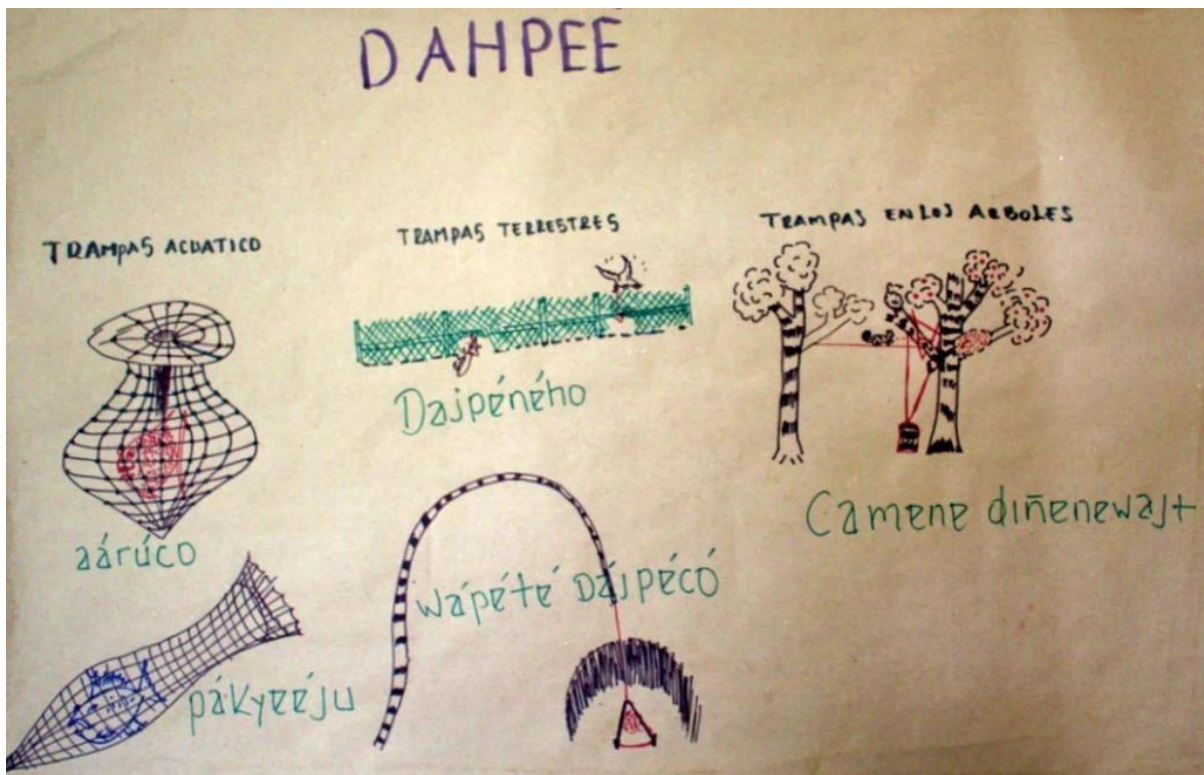 DAHPEE
TRAMPAS ACUATICO
aárúco
pákyééju
TRAMPAS TERRESTRES
Dajpéného
wápété Dájpécó
TRAMPAS EN LOS ARBOLES
Camene diñenewajt